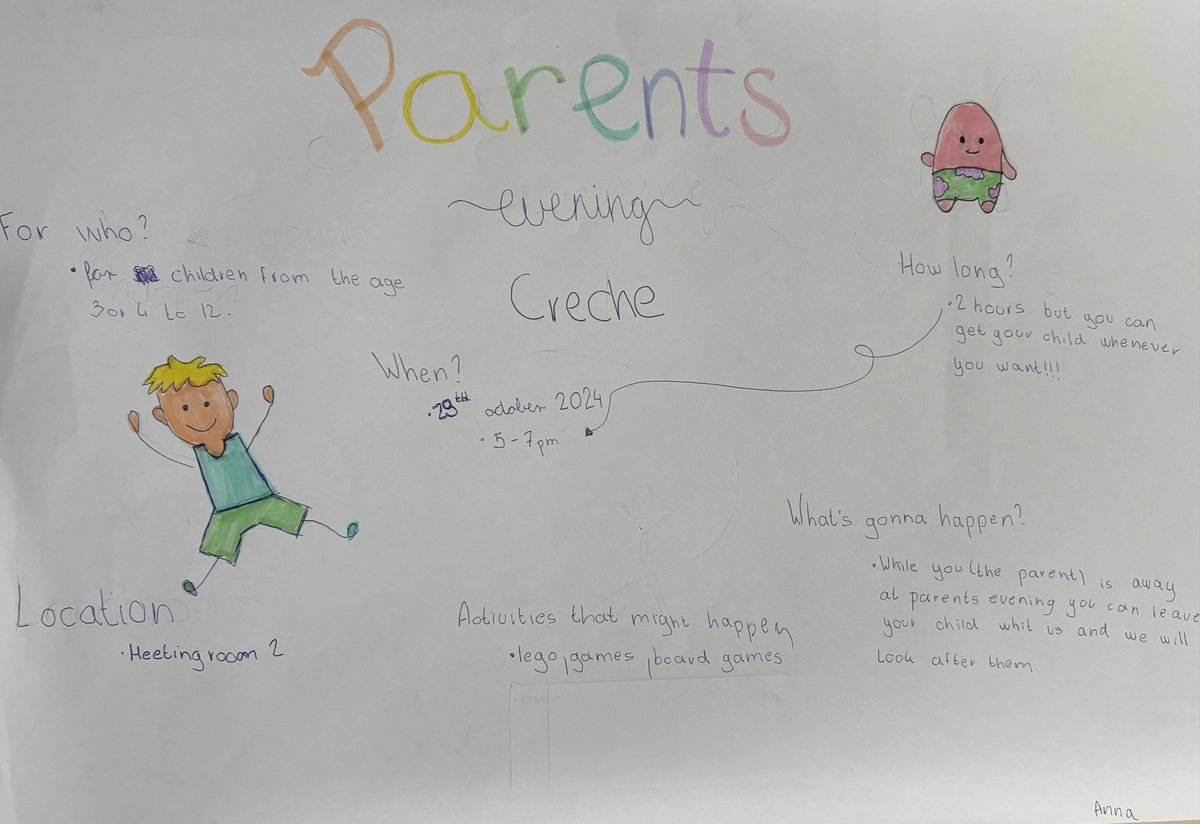 Parents
evening
Creche
For who?
• for children from the age
3 or 4 to 12.
How long?
• 2 hours but you can
get your child whenever
you want!!!
When?
• 29th october 2024
• 5-7pm
What's gonna happen?
• While you (the parent) is away
at parents evening you can leave
your child whit us and we will
look after them.
Location
• Meeting room 2
Activities that might happen
• lego, games, board games
Anna